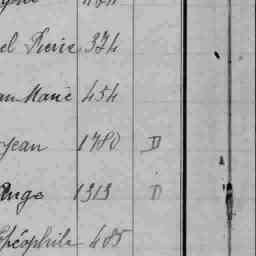 el Pierre 374
an Marie 454
Jean 1780 D
Ange 1313 D
Théophile 485